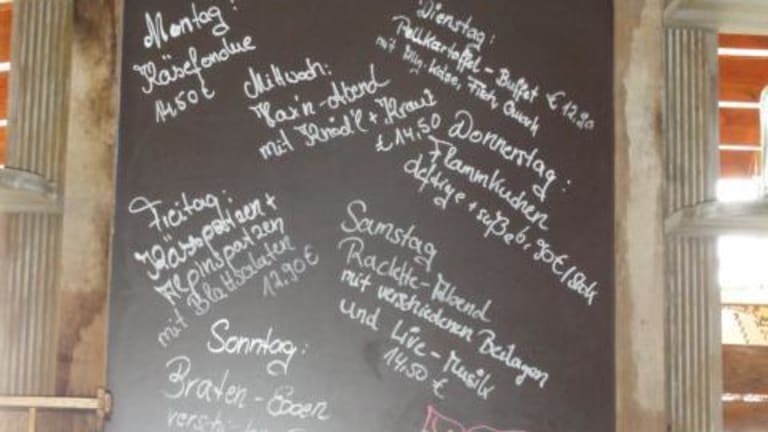 Montag:
Käsefondue
14,50 €
Dienstag:
Pellkartoffel - Buffet € 12.90
mit Käse, Fisch, Quark
Mittwoch:
Hax'n-Abend
mit Knödl + Kraut
€ 14.50
Donnerstag:
Flammkuchen
deftige + süße 6,90€/Stck
Freitag:
Kässpatzen +
Alpinspatzen
mit Blattsalaten
12.90 €
Samstag
Raclette-Abend
mit verschiedenen Beilagen
und Live-Musik
14,50 €
Sonntag:
Braten - Essen